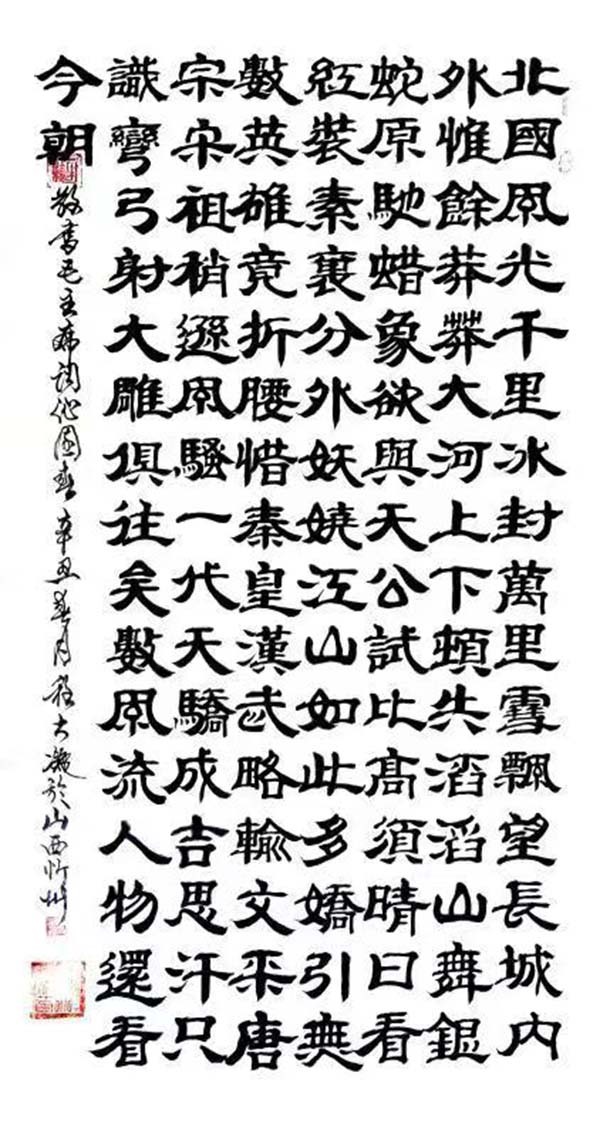 北國風光千里冰封萬里雪飄望長城內
外惟餘莽莽大河上下頓失滔滔山舞銀
蛇原馳蜡象欲與天公試比高須晴日看
紅裝素裹分外妖嬈江山如此多嬌引無
數英雄竟折腰惜秦皇漢武略輸文采唐
宗宋祖稍遜風騷一代天驕成吉思汗只
識彎弓射大雕俱往矣數風流人物還看
今朝
敬書毛主席詞沁園春 辛丑春月 程 於山西忻州